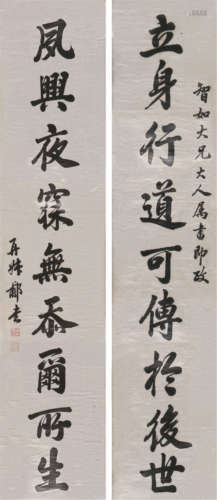 智如大兄大人属書即政
立身行道可傳於後世
夙興夜寐無忝爾所生